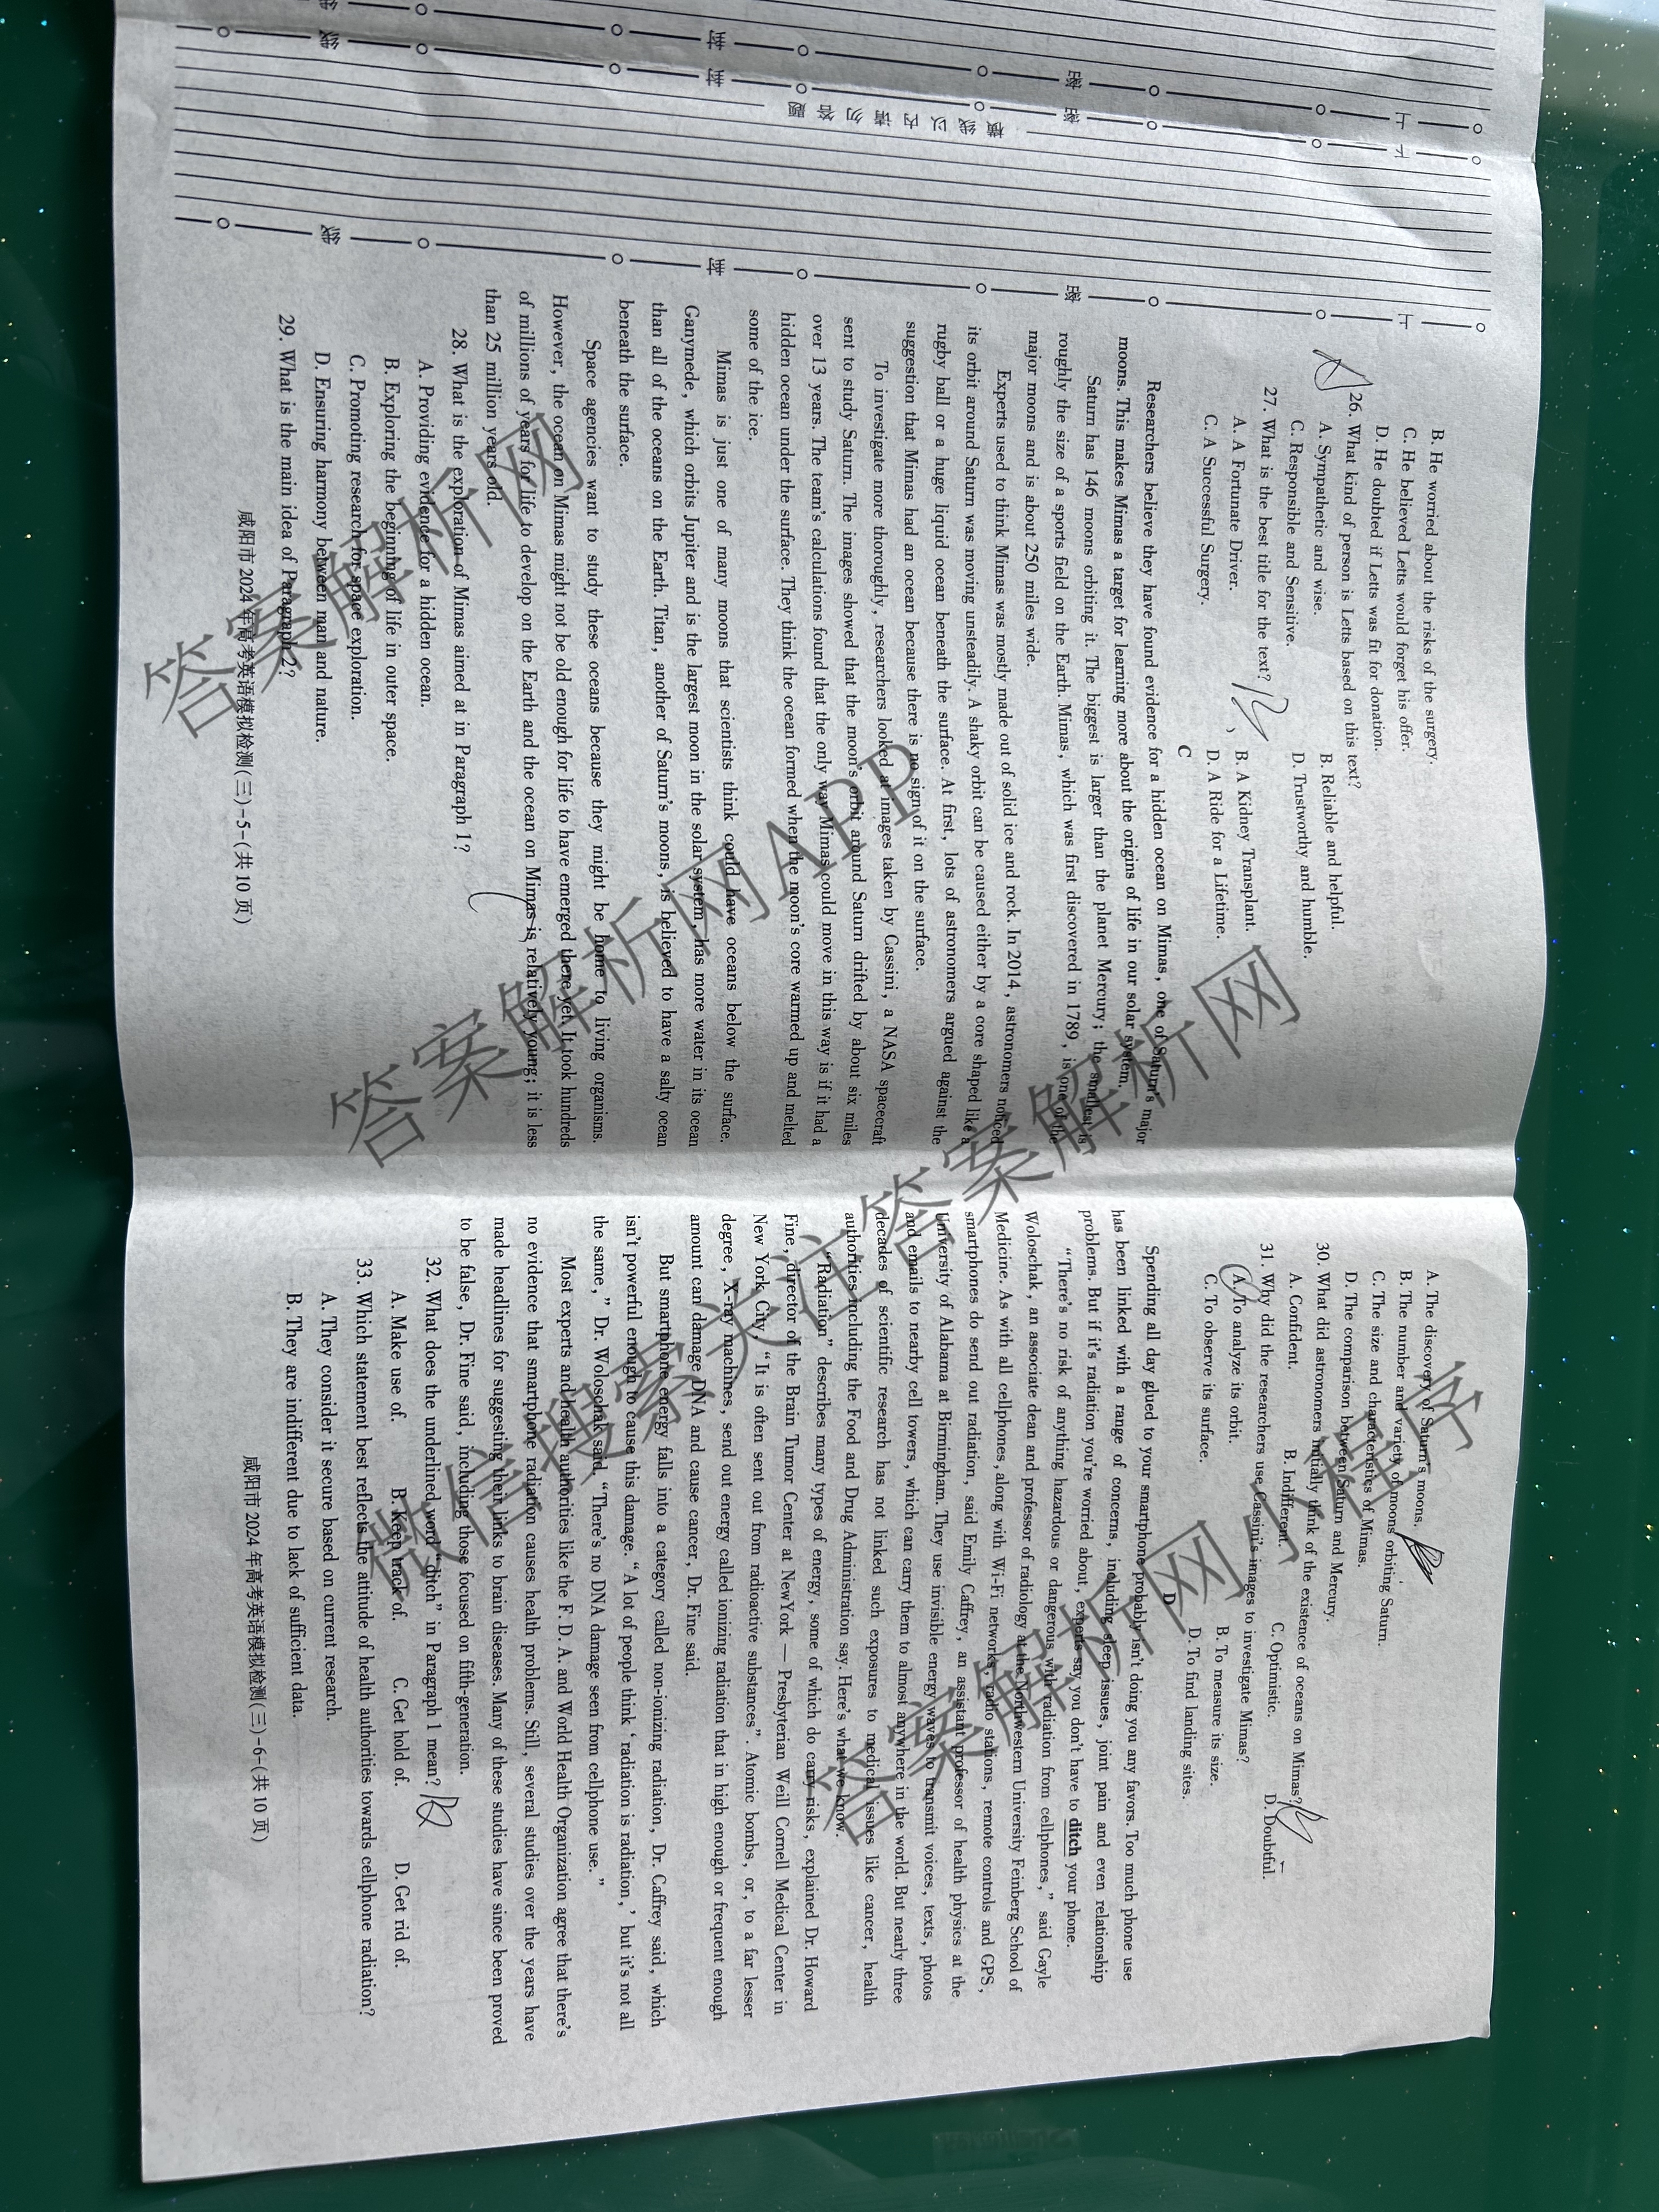 B. He worried about the risks of the surgery.
C. He believed Letts would forget his offer.
D. He doubted if Letts was fit for donation.
26. What kind of person is Letts based on this text?
A. Sympathetic and wise. B. Reliable and helpful.
C. Responsible and Sensitive. D. Trustworthy and humble.
27. What is the best title for the text?
A. A Fortunate Driver. B. A Kidney Transplant.
C. A Successful Surgery. D. A Ride for a Lifetime.
C
Researchers believe they have found evidence for a hidden ocean on Mimas, one of Saturn's major
moons. This makes Mimas a target for learning more about the origins of life in our solar system.
Saturn has 146 moons orbiting it. The biggest is larger than the planet Mercury; the smallest is
roughly the size of a sports field on the Earth. Mimas, which was first discovered in 1789, is one of the
major moons and is about 250 miles wide.
Experts used to think Mimas was mostly made out of solid ice and rock. In 2014, astronomers noticed
its orbit around Saturn was moving unsteadily. A shaky orbit can be caused either by a core shaped like a
rugby ball or a huge liquid ocean beneath the surface. At first, lots of astronomers argued against the
suggestion that Mimas had an ocean because there is no sign of it on the surface.
To investigate more thoroughly, researchers looked at images taken by Cassini, a NASA spacecraft
sent to study Saturn. The images showed that the moon's orbit around Saturn drifted by about six miles
over 13 years. The team's calculations found that the only way Mimas could move in this way is if it had a
hidden ocean under the surface. They think the ocean formed when the moon's core warmed up and melted
some of the ice.
Mimas is just one of many moons that scientists think could have oceans below the surface.
Ganymede, which orbits Jupiter and is the largest moon in the solar system, has more water in its ocean
than all of the oceans on the Earth. Titan, another of Saturn's moons, is believed to have a salty ocean
beneath the surface.
Space agencies want to study these oceans because they might be home to living organisms.
However, the ocean on Mimas might not be old enough for life to have emerged there yet. It took hundreds
of millions of years for life to develop on the Earth and the ocean on Mimas is relatively young; it is less
than 25 million years old.
28. What is the exploration of Mimas aimed at in Paragraph 1?
A. Providing evidence for a hidden ocean.
B. Exploring the beginning of life in outer space.
C. Promoting research for space exploration.
D. Ensuring harmony between man and nature.
29. What is the main idea of Paragraph 2?
咸阳市 2024 年高考英语模拟检测(三)-5-(共 10 页)
A. The discovery of Saturn's moons.
B. The number and variety of moons orbiting Saturn.
C. The size and characteristics of Mimas.
D. The comparison between Saturn and Mercury.
30. What did astronomers initially think of the existence of oceans on Mimas?
A. Confident. B. Indifferent. C. Optimistic. D. Doubtful.
31. Why did the researchers use Cassini's images to investigate Mimas?
A. To analyze its orbit. B. To measure its size.
C. To observe its surface. D. To find landing sites.
D
Spending all day glued to your smartphone probably isn't doing you any favors. Too much phone use
has been linked with a range of concerns, including sleep issues, joint pain and even relationship
problems. But if it's radiation you're worried about, experts say you don't have to ditch your phone.
"There's no risk of anything hazardous or dangerous with radiation from cellphones," said Gayle
Woloschak, an associate dean and professor of radiology at the Northwestern University Feinberg School of
Medicine. As with all cellphones, along with Wi-Fi networks, radio stations, remote controls and GPS,
smartphones do send out radiation, said Emily Caffrey, an assistant professor of health physics at the
University of Alabama at Birmingham. They use invisible energy waves to transmit voices, texts, photos
and emails to nearby cell towers, which can carry them to almost anywhere in the world. But nearly three
decades of scientific research has not linked such exposures to medical issues like cancer, health
authorities including the Food and Drug Administration say. Here's what we know.
"Radiation" describes many types of energy, some of which do carry risks, explained Dr. Howard
Fine, director of the Brain Tumor Center at NewYork — Presbyterian Weill Cornell Medical Center in
New York City, "It is often sent out from radioactive substances". Atomic bombs, or, to a far lesser
degree, X-ray machines, send out energy called ionizing radiation that in high enough or frequent enough
amount can damage DNA and cause cancer, Dr. Fine said.
But smartphone energy falls into a category called non-ionizing radiation, Dr. Caffrey said, which
isn't powerful enough to cause this damage. "A lot of people think 'radiation is radiation,' but it's not all
the same," Dr. Woloschak said. "There's no DNA damage seen from cellphone use."
Most experts and health authorities like the F. D. A. and World Health Organization agree that there's
no evidence that smartphone radiation causes health problems. Still, several studies over the years have
made headlines for suggesting their links to brain diseases. Many of these studies have since been proved
to be false, Dr. Fine said, including those focused on fifth-generation.
32. What does the underlined word "ditch" in Paragraph 1 mean?
A. Make use of. B. Keep track of. C. Get hold of. D. Get rid of.
33. Which statement best reflects the attitude of health authorities towards cellphone radiation?
A. They consider it secure based on current research.
B. They are indifferent due to lack of sufficient data.
咸阳市 2024 年高考英语模拟检测(三)-6-(共 10 页)
横线以内请勿答题
密 封 线
答案解析网
答案解析网APP
微信搜索关注答案解析网
答案解析网小程序